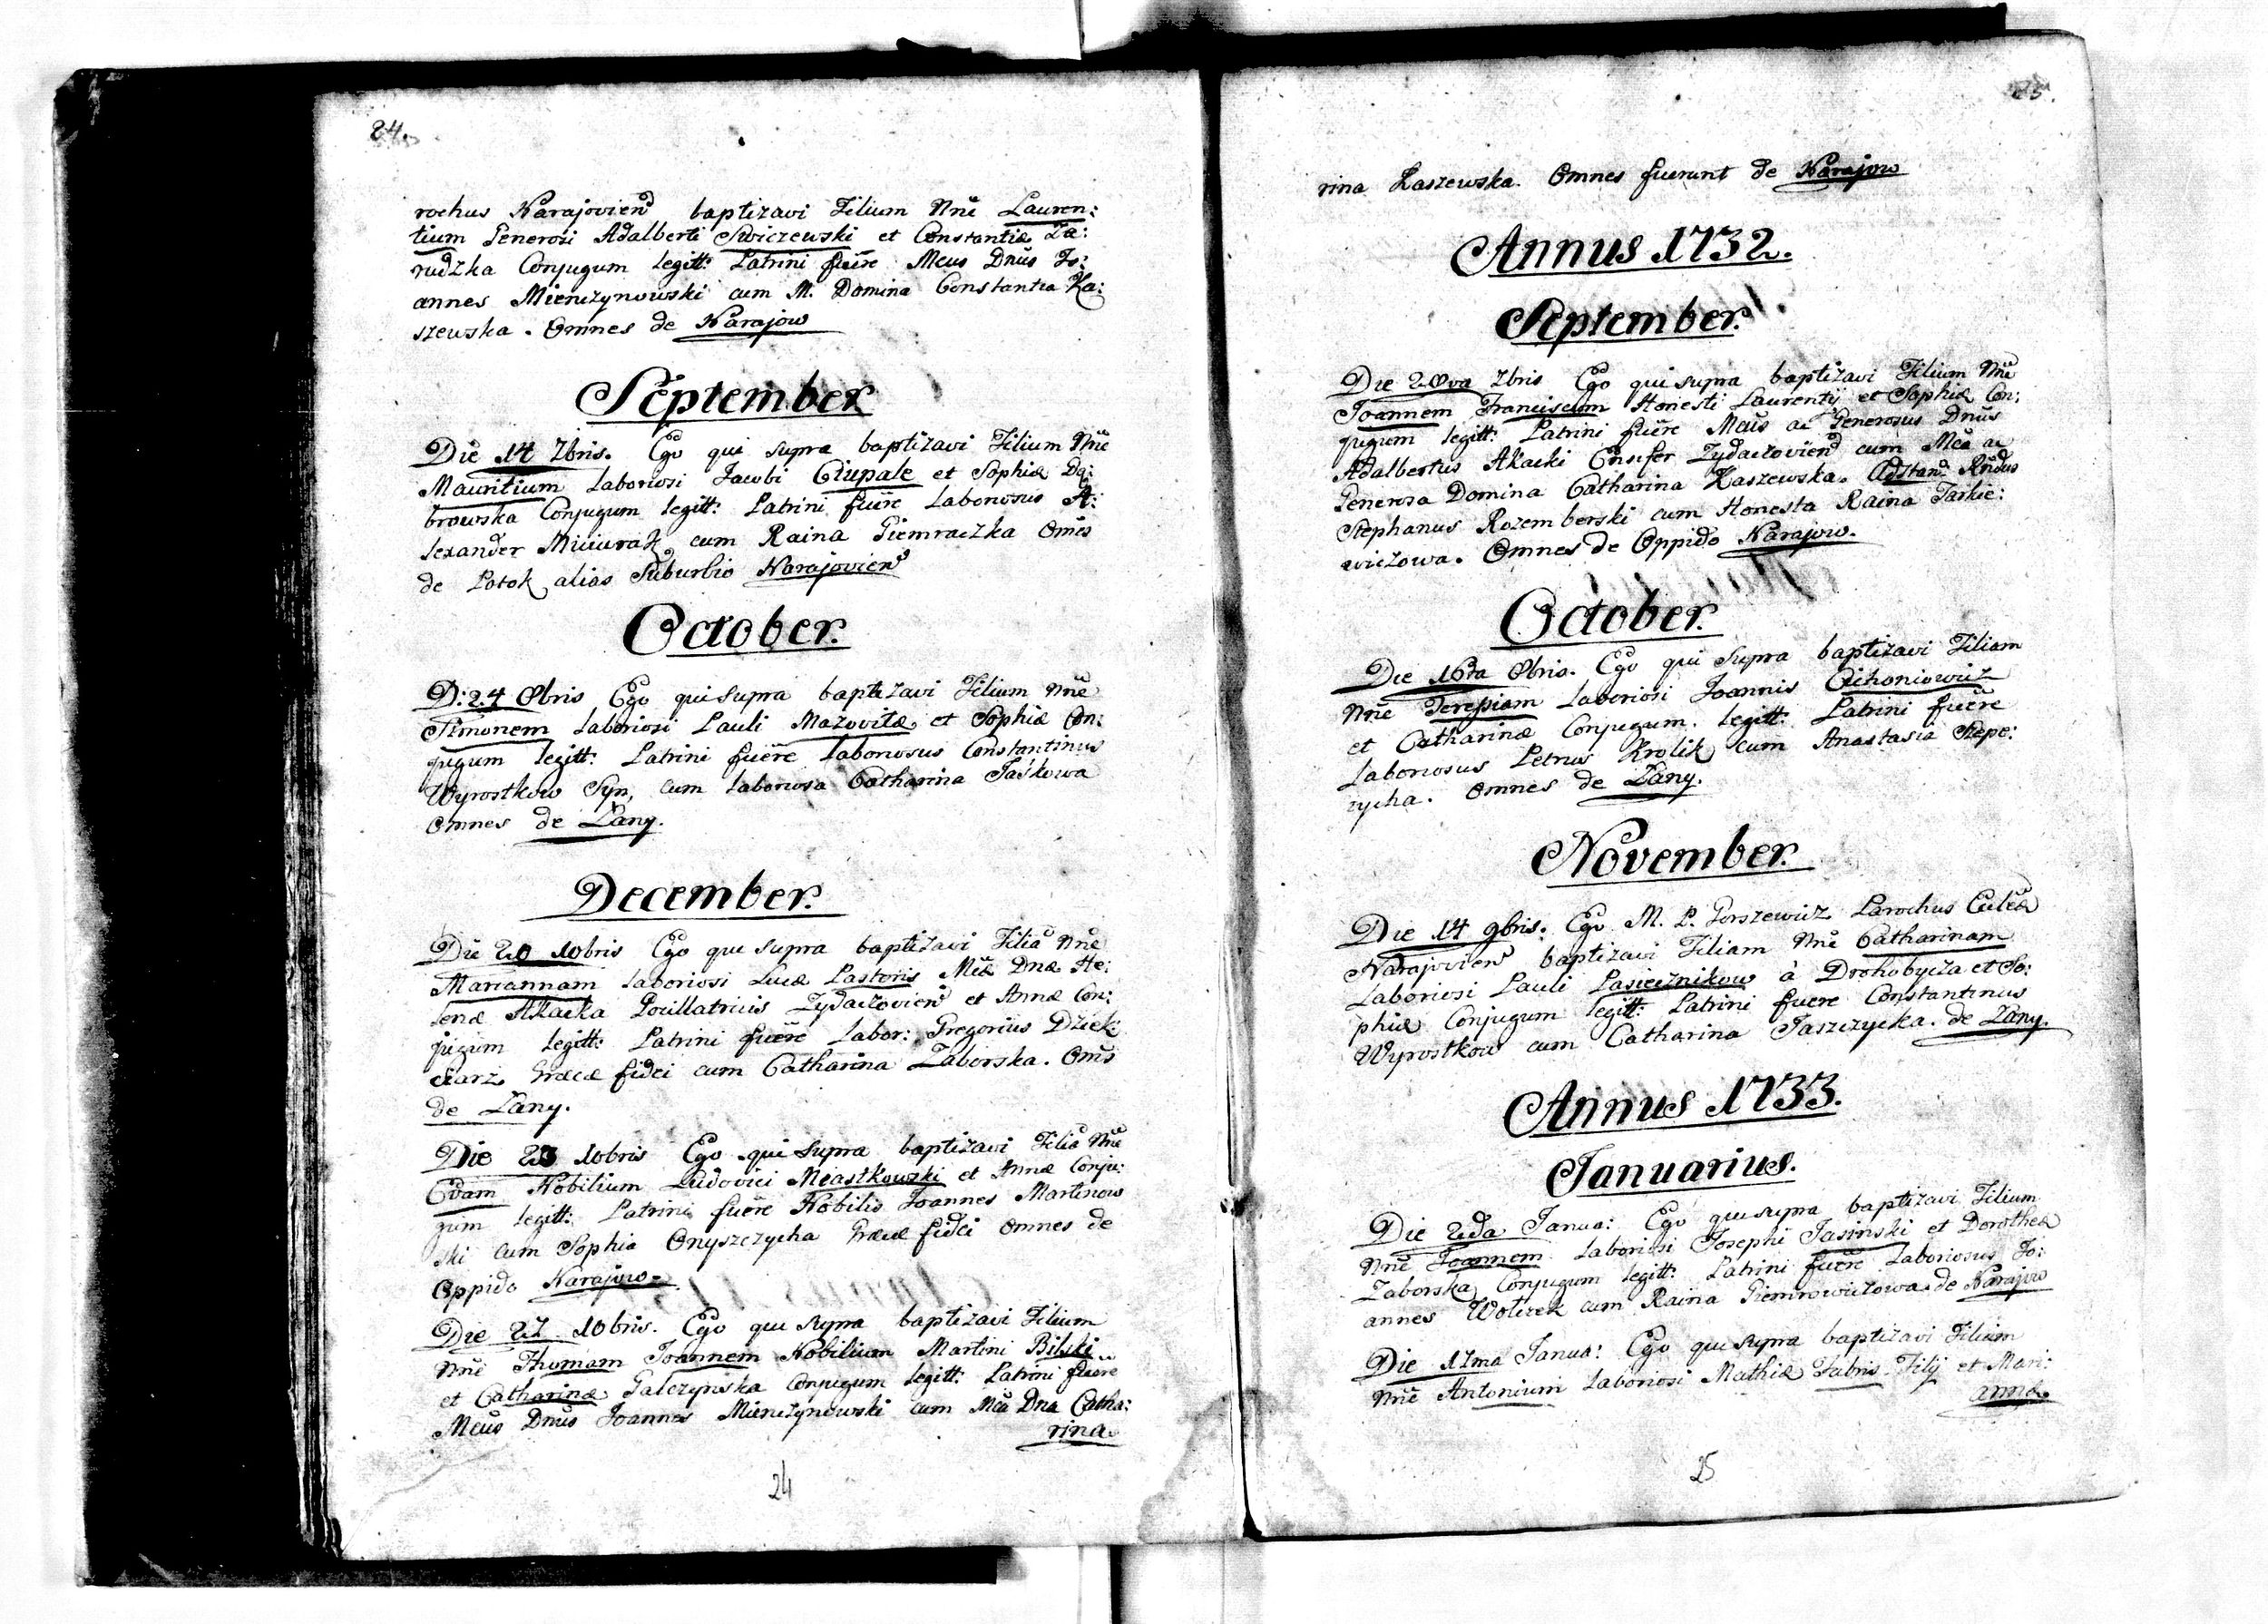 24.
rochus Narajovien baptizavi Filium Nne Lauren:
tium Generosi Adalberti Swiczewski et Constantiæ Za:
rudzka Conjugum legitt: Patrini fuere Mcus Dnus Jo:
annes Mienczynowski cum M. Domina Constantia Ka:
szewska. Omnes de Narajow
September
Die 14 7bris. Ego qui supra baptizavi Filium Nne
Mauritium Laboriosi Jacobi Ciupale et Sophiæ Dą:
browska Conjugum legitt: Patrini fuere Laboriosus A:
lexander cum Raina Giemraczka Omes
de Potok alias Suburbio Narajovien
October.
D: 24 8bris Ego qui supra baptizavi Filium Nne
Simonem Laboriosi Pauli Mazovitæ et Sophiæ Con:
jugum legitt: Patrini fuere Laboriosus Constantinus
Wyrostkow Syn, cum Laboriosa Catharina Jaśkowa
Omnes de Łany.
December.
Die 20 10bris Ego qui supra baptizavi Filia Nne
Mariannam Laboriosi Lucæ Pastoris Mcæ Dnæ He:
lenæ Akacka Pocillatricis Zydaczovien et Annæ Con:
jugum legitt: Patrini fuere Labor: Gregorius Dziek:
ciarz Græcæ fidei cum Catharina Zaborska. Oms
de Łany.
Die 23 10bris Ego qui supra baptizavi Filia Nne
Evam Nobilium Ludovici Miastkowski et Annæ Conju:
gum legitt: Patrini fuere Nobilis Joannes Martinow
ski cum Sophia Onyszczycha Græcæ fidei Omnes de
Oppido Narajow.
Die 27 10bris. Ego qui supra baptizavi Filium
Nne Thomam Joannem Nobilium Martini Bilski
et Catharinæ Galczynska Conjugum legitt: Patrini fuere
Mcus Dnus Joannes Mienczynowski cum Mca Dna Catha:
rina
24
25.
rina Kaszewska. Omnes fuerunt de Narajow
Annus 1732.
September.
Die 28va 7bris Ego qui supra baptizavi Filium Nne
Joannem Franciscum Honesti Laurentij et Sophiæ Con:
jugum legitt: Patrini fuere Mcus ac Generosus Dnus
Adalbertus Akacki Ensifer Zydaczovien cum Mca ac
Generosa Domina Catharina Kaszewska. Adstan: Rndus
Stephanus Rozemberski cum Honesta Raina Taskie:
wiczowa. Omnes de Oppido Narajow.
October.
Die 16ta 8bris. Ego qui supra baptizavi Filiam
Nne Teresiam Laboriosi Joannis Cichoniowicz
et Catharinæ Conjugum. legitt: Patrini fuere
Laboriosus Petrus Krolik cum Anastasia Stepe:
rycha. Omnes de Łany.
November.
Die 14 9bris. Ego M. P. Gorszewicz Parochus Ecclæ
Narajovien baptizavi Filiam Nne Catharinam
Laboriosi Pauli Pasiecznikow à Drohobycza et So:
phiæ Conjugum legitt: Patrini fuere Constantinus
Wyrostkow cum Catharina Jaszczycka. de Łany.
Annus 1733.
Januarius.
Die 2da Janua: Ego qui supra baptizavi Filium
Nne Joannem Laboriosi Josephi Jasinski et Dorotheæ
Zaborska Conjugum legitt: Patrini fuere Laboriosus Jo:
annes Wolczek cum Raina Giemrowiczowa de Narajow
Die 17ma Janua: Ego qui supra baptizavi Filium
Nne Antonium Laboriosi Mathiæ Fabris Filij et Mari:
annæ
25